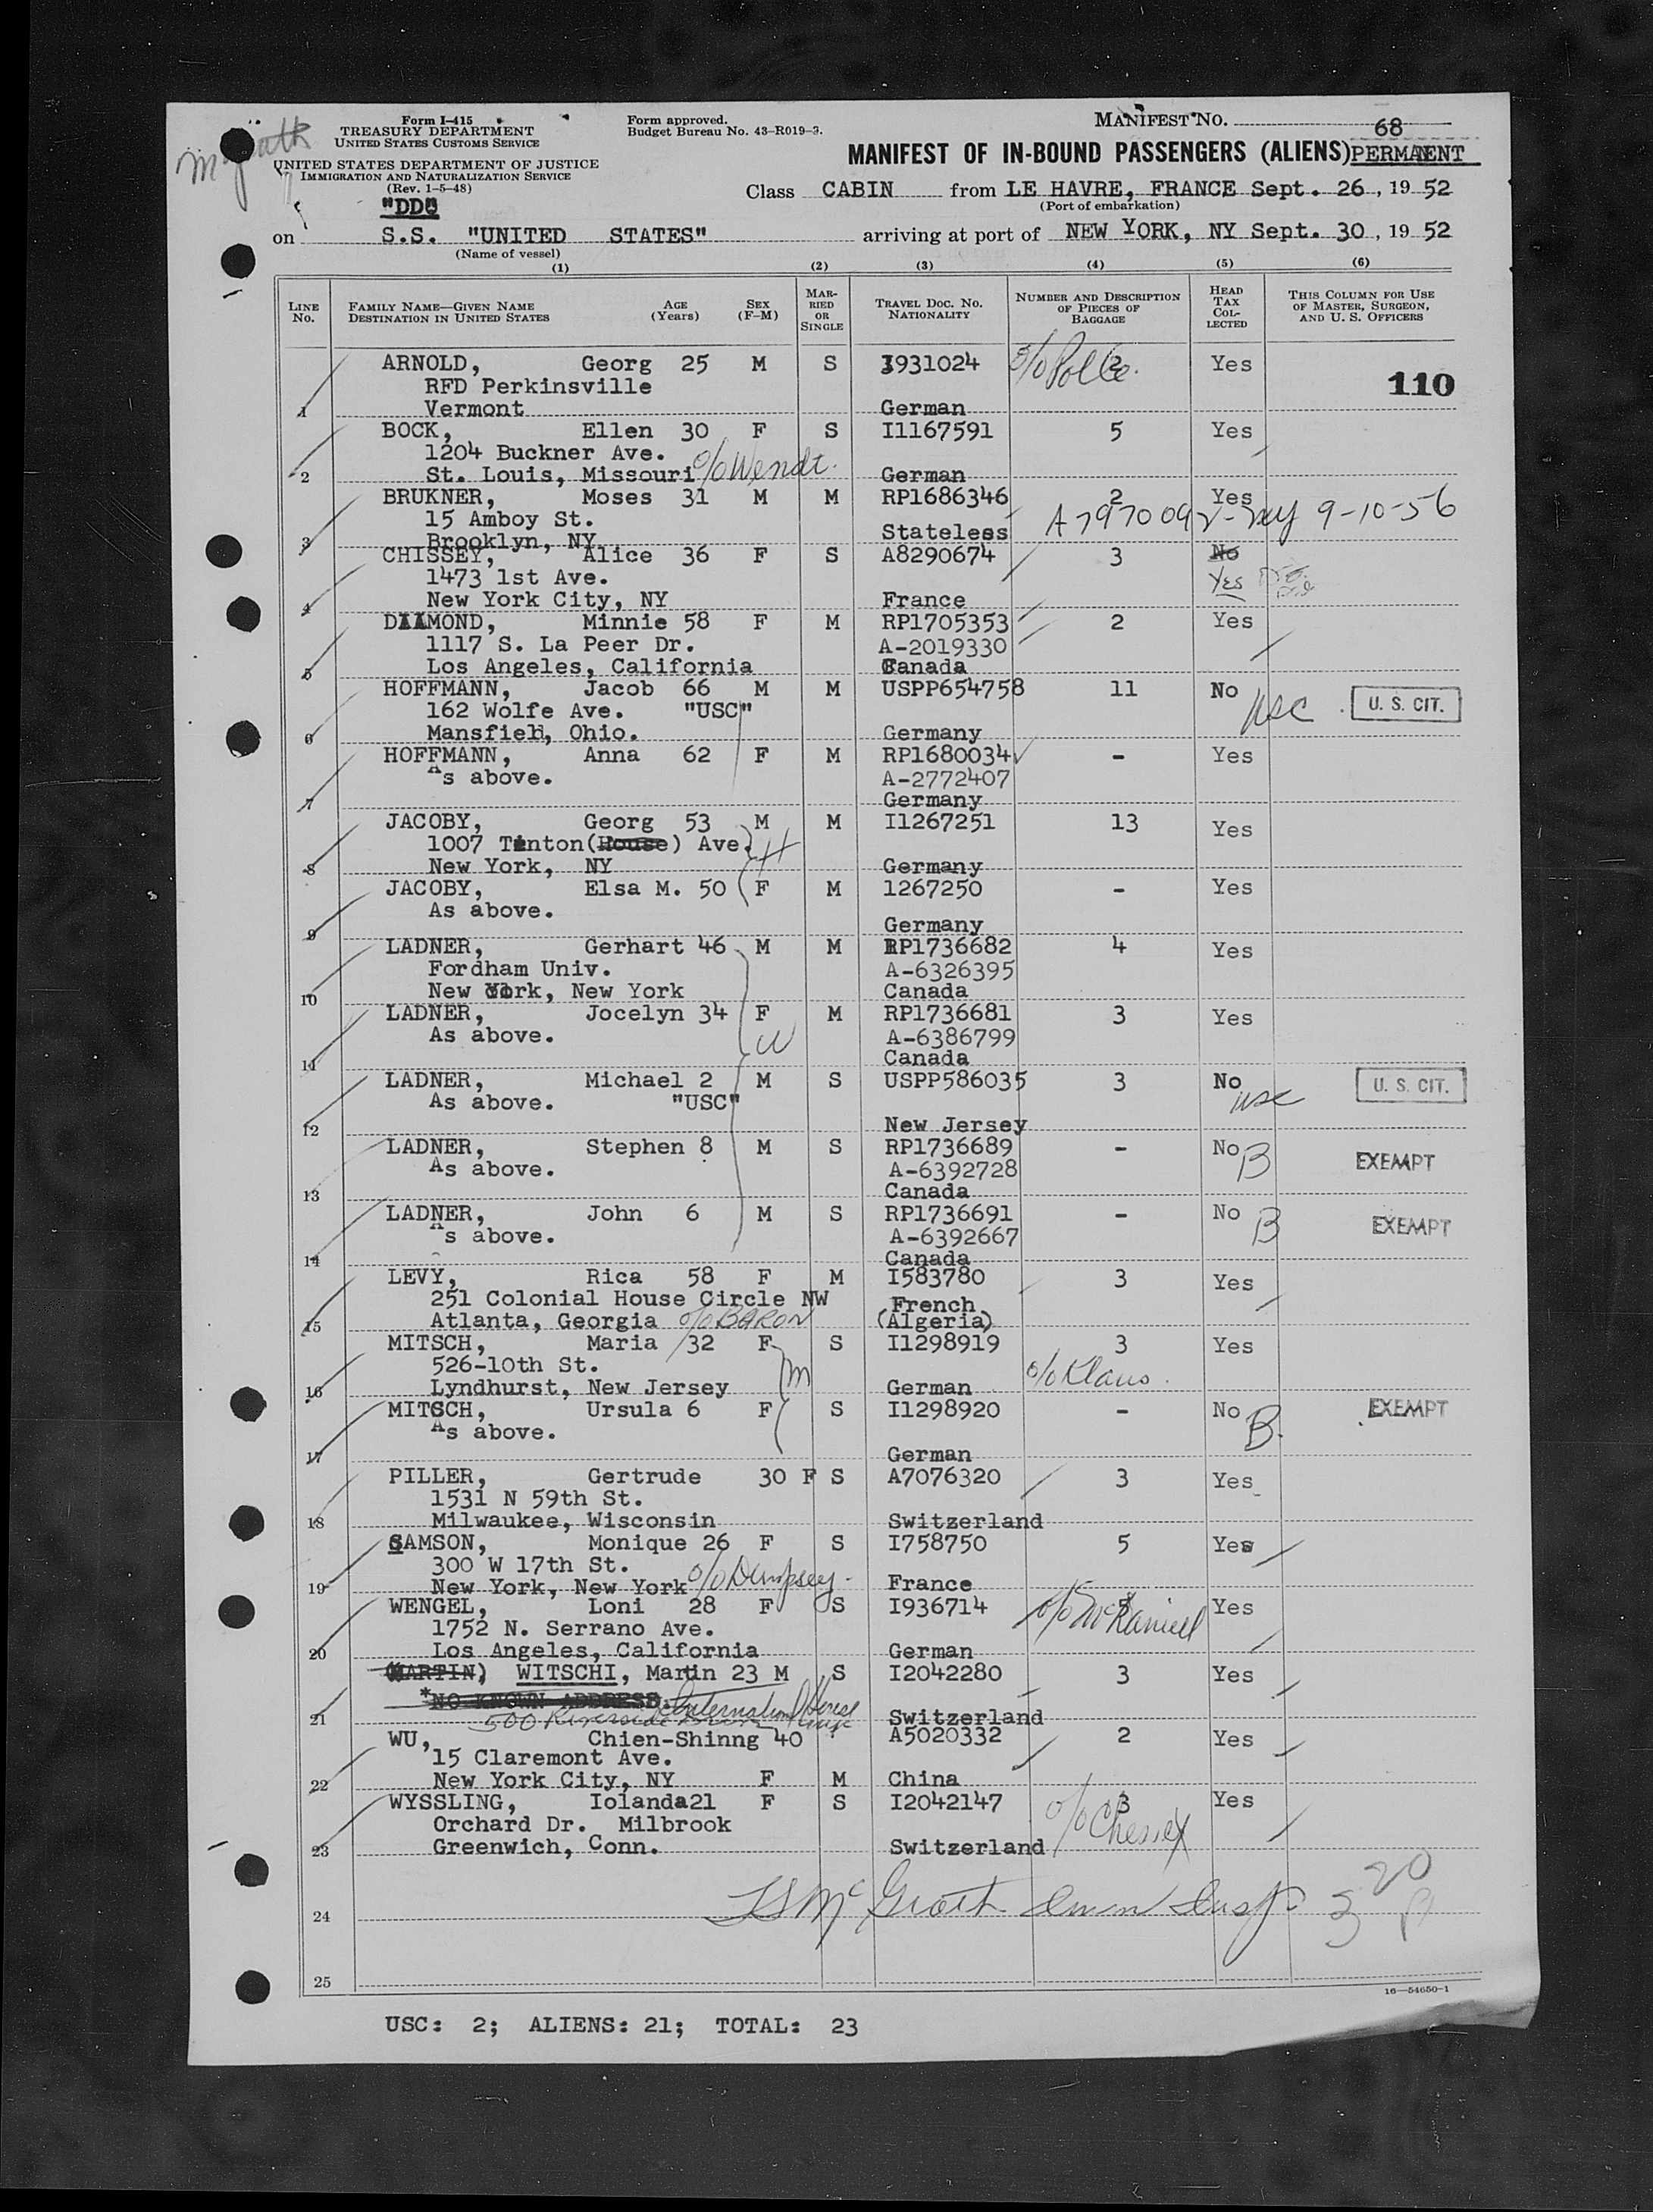 McGrath
Form I-415
TREASURY DEPARTMENT
UNITED STATES CUSTOMS SERVICE
UNITED STATES DEPARTMENT OF JUSTICE
IMMIGRATION AND NATURALIZATION SERVICE
(Rev. 1-5-48)
"DD"
Form approved.
Budget Bureau No. 43-R019-3.
MANIFEST NO. 68
MANIFEST OF IN-BOUND PASSENGERS (ALIENS) PERMANENT
Class CABIN from LE HAVRE, FRANCE Sept. 26, 1952
(Port of embarkation)
on S.S. "UNITED STATES" arriving at port of NEW YORK, NY Sept. 30, 1952
(Name of vessel)
(1) (2) (3) (4) (5) (6)
LINE No. FAMILY NAME—GIVEN NAME DESTINATION IN UNITED STATES AGE (Years) SEX (F-M) MARRIED OR SINGLE TRAVEL DOC. NO. NATIONALITY NUMBER AND DESCRIPTION OF PIECES OF BAGGAGE HEAD TAX COLLECTED THIS COLUMN FOR USE OF MASTER, SURGEON, AND U. S. OFFICERS
ARNOLD, Georg 25 M S I931024 2 Yes
RFD Perkinsville 110
1 Vermont German
BOCK, Ellen 30 F S I1167591 5 Yes
1204 Buckner Ave.
2 St. Louis, Missouri c/o Wendt. German
BRUKNER, Moses 31 M M RP1686346 2 Yes
15 Amboy St. Stateless A7970092-ny 9-10-56
3 Brooklyn, NY
CHISSEY, Alice 36 F S A8290674 3 No
1473 1st Ave. Yes
4 New York City, NY France
DIAMOND, Minnie 58 F M RP1705353 2 Yes
1117 S. La Peer Dr. A-2019330
5 Los Angeles, California Canada
HOFFMANN, Jacob 66 M M USPP654758 11 No
162 Wolfe Ave. "USC" USC U. S. CIT.
6 Mansfield, Ohio. Germany
HOFFMANN, Anna 62 F M RP1680034 - Yes
As above. A-2772407
7 Germany
JACOBY, Georg 53 M M I1267251 13 Yes
1007 Tinton(House) Ave. H
8 New York, NY Germany
JACOBY, Elsa M. 50 F M 1267250 - Yes
As above.
9 Germany
LADNER, Gerhart 46 M M RP1736682 4 Yes
Fordham Univ. A-6326395
10 New York, New York Canada
LADNER, Jocelyn 34 F M RP1736681 3 Yes
As above. W A-6386799
11 Canada
LADNER, Michael 2 M S USPP586035 3 No U. S. CIT.
As above. "USC" USC
12 New Jersey
LADNER, Stephen 8 M S RP1736689 - No B EXEMPT
As above. A-6392728
13 Canada
LADNER, John 6 M S RP1736691 - No B EXEMPT
As above. A-6392667
14 Canada
LEVY, Rica 58 F M I583780 3 Yes
251 Colonial House Circle NW French
15 Atlanta, Georgia c/o BARON (Algeria)
MITSCH, Maria 32 F S I1298919 3 Yes
526-10th St. M c/o Klaus.
16 Lyndhurst, New Jersey German
MITSCH, Ursula 6 F S I1298920 - No B. EXEMPT
As above.
17 German
PILLER, Gertrude 30 F S A7076320 3 Yes
1531 N 59th St.
18 Milwaukee, Wisconsin Switzerland
SAMSON, Monique 26 F S I758750 5 Yes
300 W 17th St.
19 New York, New York c/o Dempsey. France
WENGEL, Loni 28 F S I936714 Yes
1752 N. Serrano Ave.
20 Los Angeles, California German
(MARTIN) WITSCHI, Martin 23 M S I2042280 3 Yes
*NO KNOWN ADDRESS. International House
21 500 Riverside Drive Switzerland
WU, Chien-Shinng 40 A5020332 2 Yes
15 Claremont Ave.
22 New York City, NY F M China
WYSSLING, Iolanda21 F S I2042147 3 Yes
Orchard Dr. Milbrook
23 Greenwich, Conn. Switzerland
McGrath Imm Insp 20
24 3
25
16—54650-1
USC: 2; ALIENS: 21; TOTAL: 23